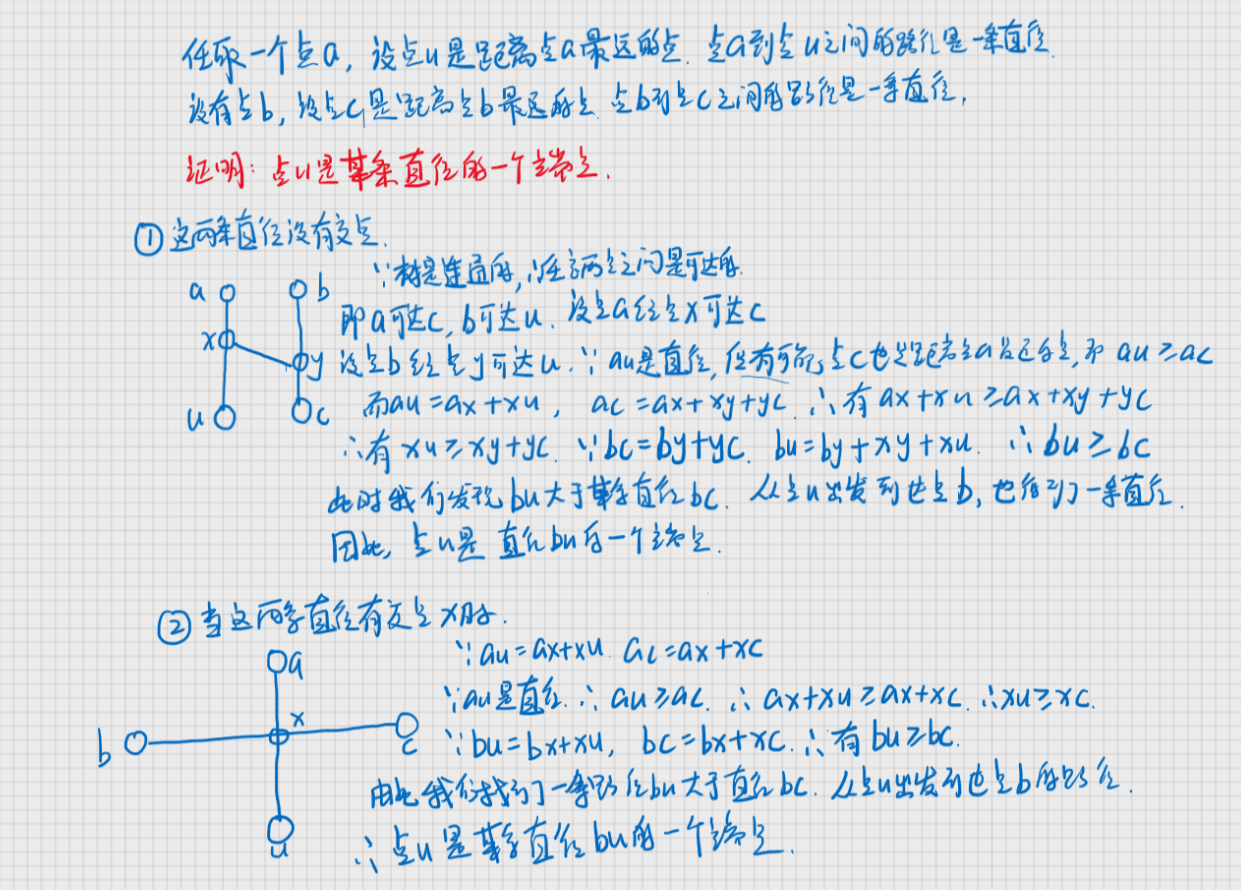 任取一个点a, 设点u是距离点a最远的点. 点a到点u之间的路径是一条直径.
设有点b, 设点c是距离点b最远的点. 点b到点c之间的路径是一条直径.
证明: 点u是某条直径的一个端点.
①这两条直径没有交点.
∵树是连通的, ∴任意两点之间是可达的.
a
b
即a可达c, b可达u. 设点a经点x可达c
x
y
设点b经点y可达u. ∵au是直径, 但有可能点c也是距离点a最远的点, 即 au≥ac
u
c
而au=ax+xu, ac=ax+xy+yc. ∴有ax+xu≥ax+xy+yc
∴有xu≥xy+yc. ∵bc=by+yc. bu=by+xy+xu. ∴bu≥bc
此时我们发现bu大于某条直径bc. 从点u出发到达点b, 也得到了一条直径.
因此, 点u是直径bu的一个端点.
②当这两条直径有交点x时.
a
∵au=ax+xu. ac=ax+xc
∵au是直径. ∴au≥ac. ∴ax+xu≥ax+xc. ∴xu≥xc.
x
b
c
∵bu=bx+xu, bc=bx+xc. ∴有bu≥bc.
由此我们找到了一条路径bu大于直径bc. 从点u出发到达点b的路径.
u
∴点u是某条直径bu的一个端点.